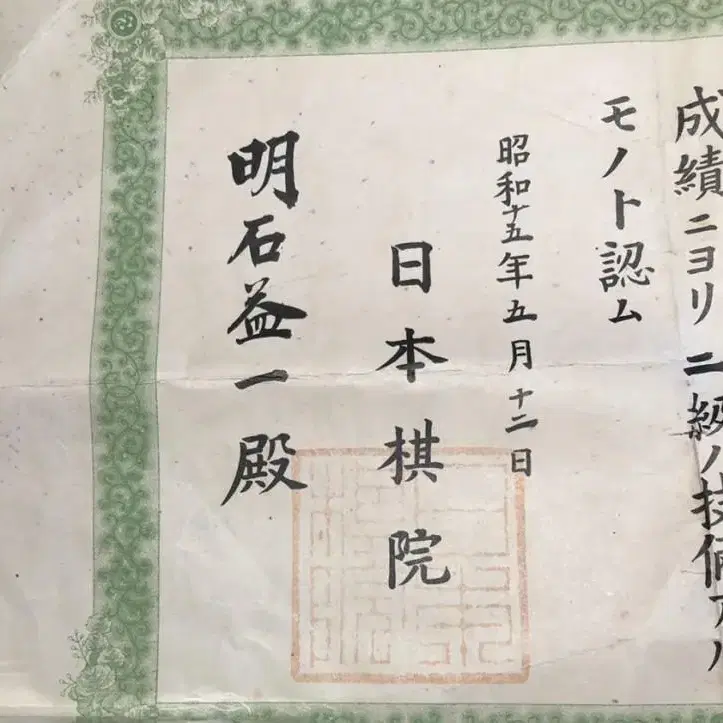 成績ニヨリ二級ノ技倆アル
モノト認ム
昭和十五年五月十二日
日本棋院
明石益一殿